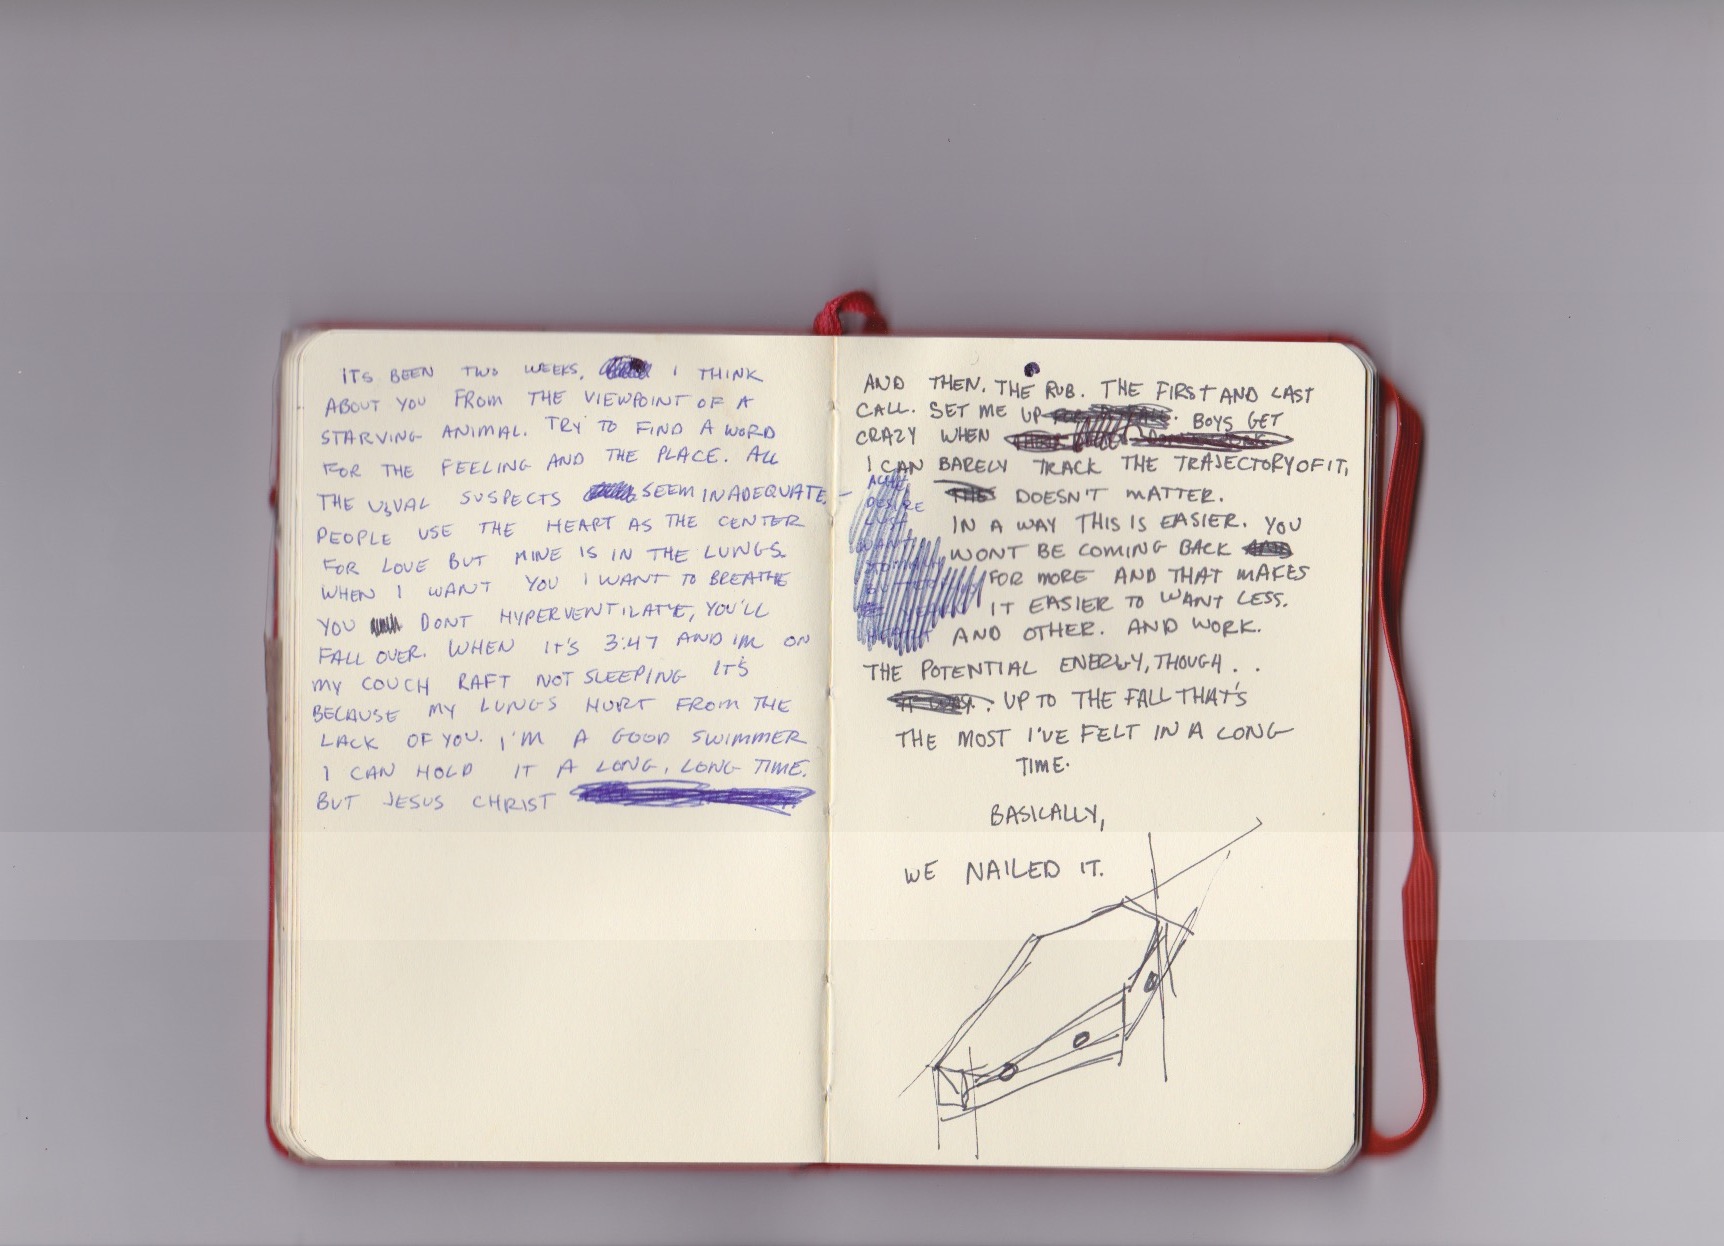 ITS BEEN TWO WEEKS. I THINK
ABOUT YOU FROM THE VIEWPOINT OF A
STARVING ANIMAL. TRY TO FIND A WORD
FOR THE FEELING AND THE PLACE. ALL
THE USUAL SUSPECTS SEEM INADEQUATE. -
PEOPLE USE THE HEART AS THE CENTER
FOR LOVE BUT MINE IS IN THE LUNGS.
WHEN I WANT YOU I WANT TO BREATHE
YOU DONT HYPERVENTILATE, YOU'LL
FALL OVER. WHEN IT'S 3:47 AND IM ON
MY COUCH RAFT NOT SLEEPING IT'S
BECAUSE MY LUNGS HURT FROM THE
LACK OF YOU. I'M A GOOD SWIMMER
I CAN HOLD IT A LONG, LONG TIME.
BUT JESUS CHRIST
AND THEN. THE RUB. THE FIRST AND LAST
CALL. SET ME UP BOYS GET
CRAZY WHEN
I CAN BARELY TRACK THE TRAJECTORY OF IT,
DOESN'T MATTER.
IN A WAY THIS IS EASIER. YOU
WONT BE COMING BACK
FOR MORE AND THAT MAKES
IT EASIER TO WANT LESS.
AND OTHER. AND WORK.
ACHE
DESIRE
LUST
WANT
THE POTENTIAL ENERGY, THOUGH . .
UP TO THE FALL THAT'S
THE MOST I'VE FELT IN A LONG
TIME.
BASICALLY,
WE NAILED IT.